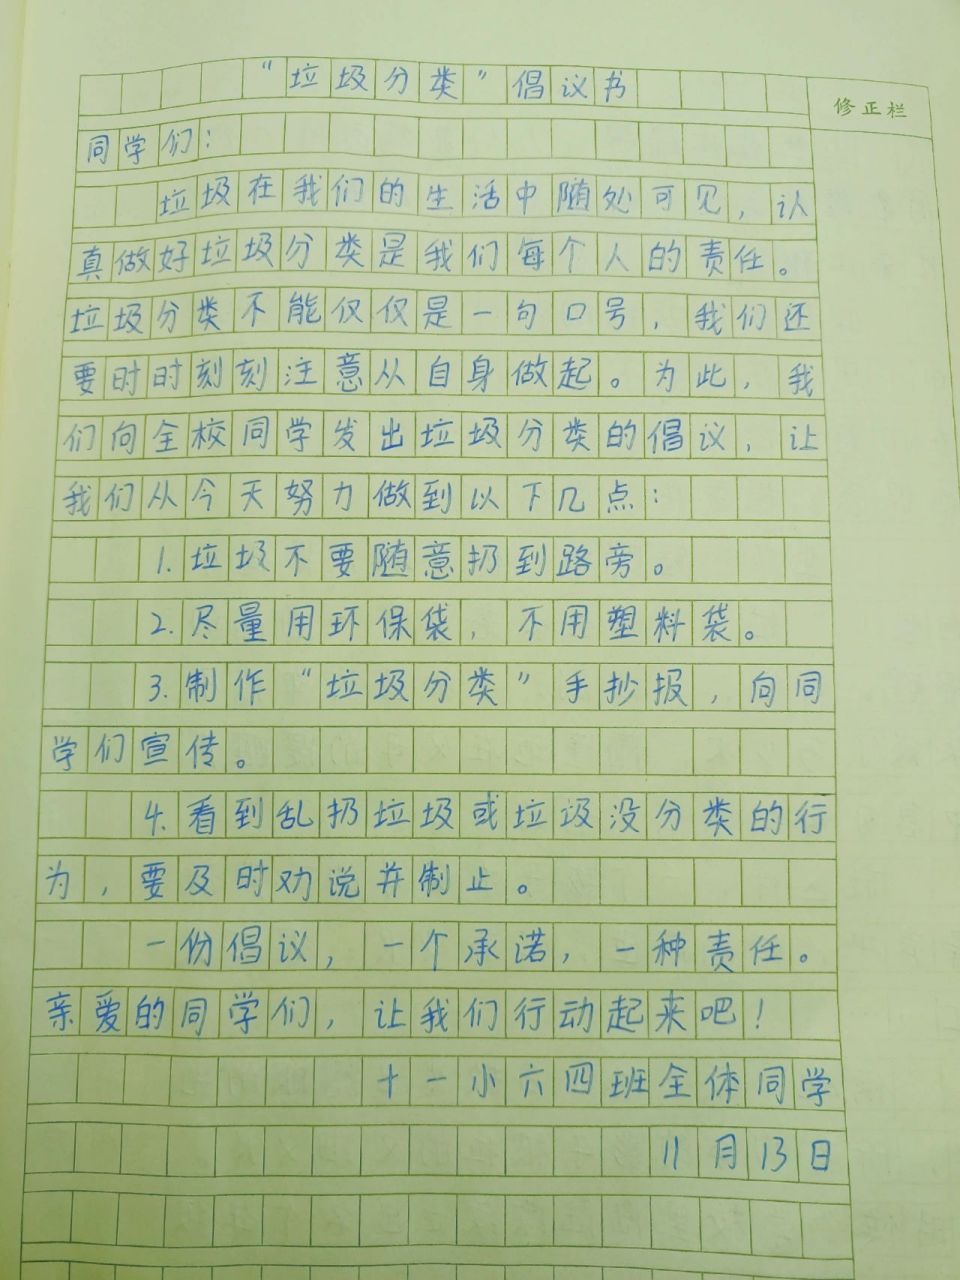 "垃圾分类"倡议书
修正栏
同学们：
垃圾在我们的生活中随处可见，认
真做好垃圾分类是我们每个人的责任。
垃圾分类不能仅仅是一句口号，我们还
要时时刻刻注意从自身做起。为此，我
们向全校同学发出垃圾分类的倡议，让
我们从今天努力做到以下几点：
1.垃圾不要随意扔到路旁。
2.尽量用环保袋，不用塑料袋。
3.制作"垃圾分类"手抄报，向同
学们宣传。
4.看到乱扔垃圾或垃圾没分类的行
为，要及时劝说并制止。
一份倡议，一个承诺，一种责任。
亲爱的同学们，让我们行动起来吧！
十一小六四班全体同学
11月13日